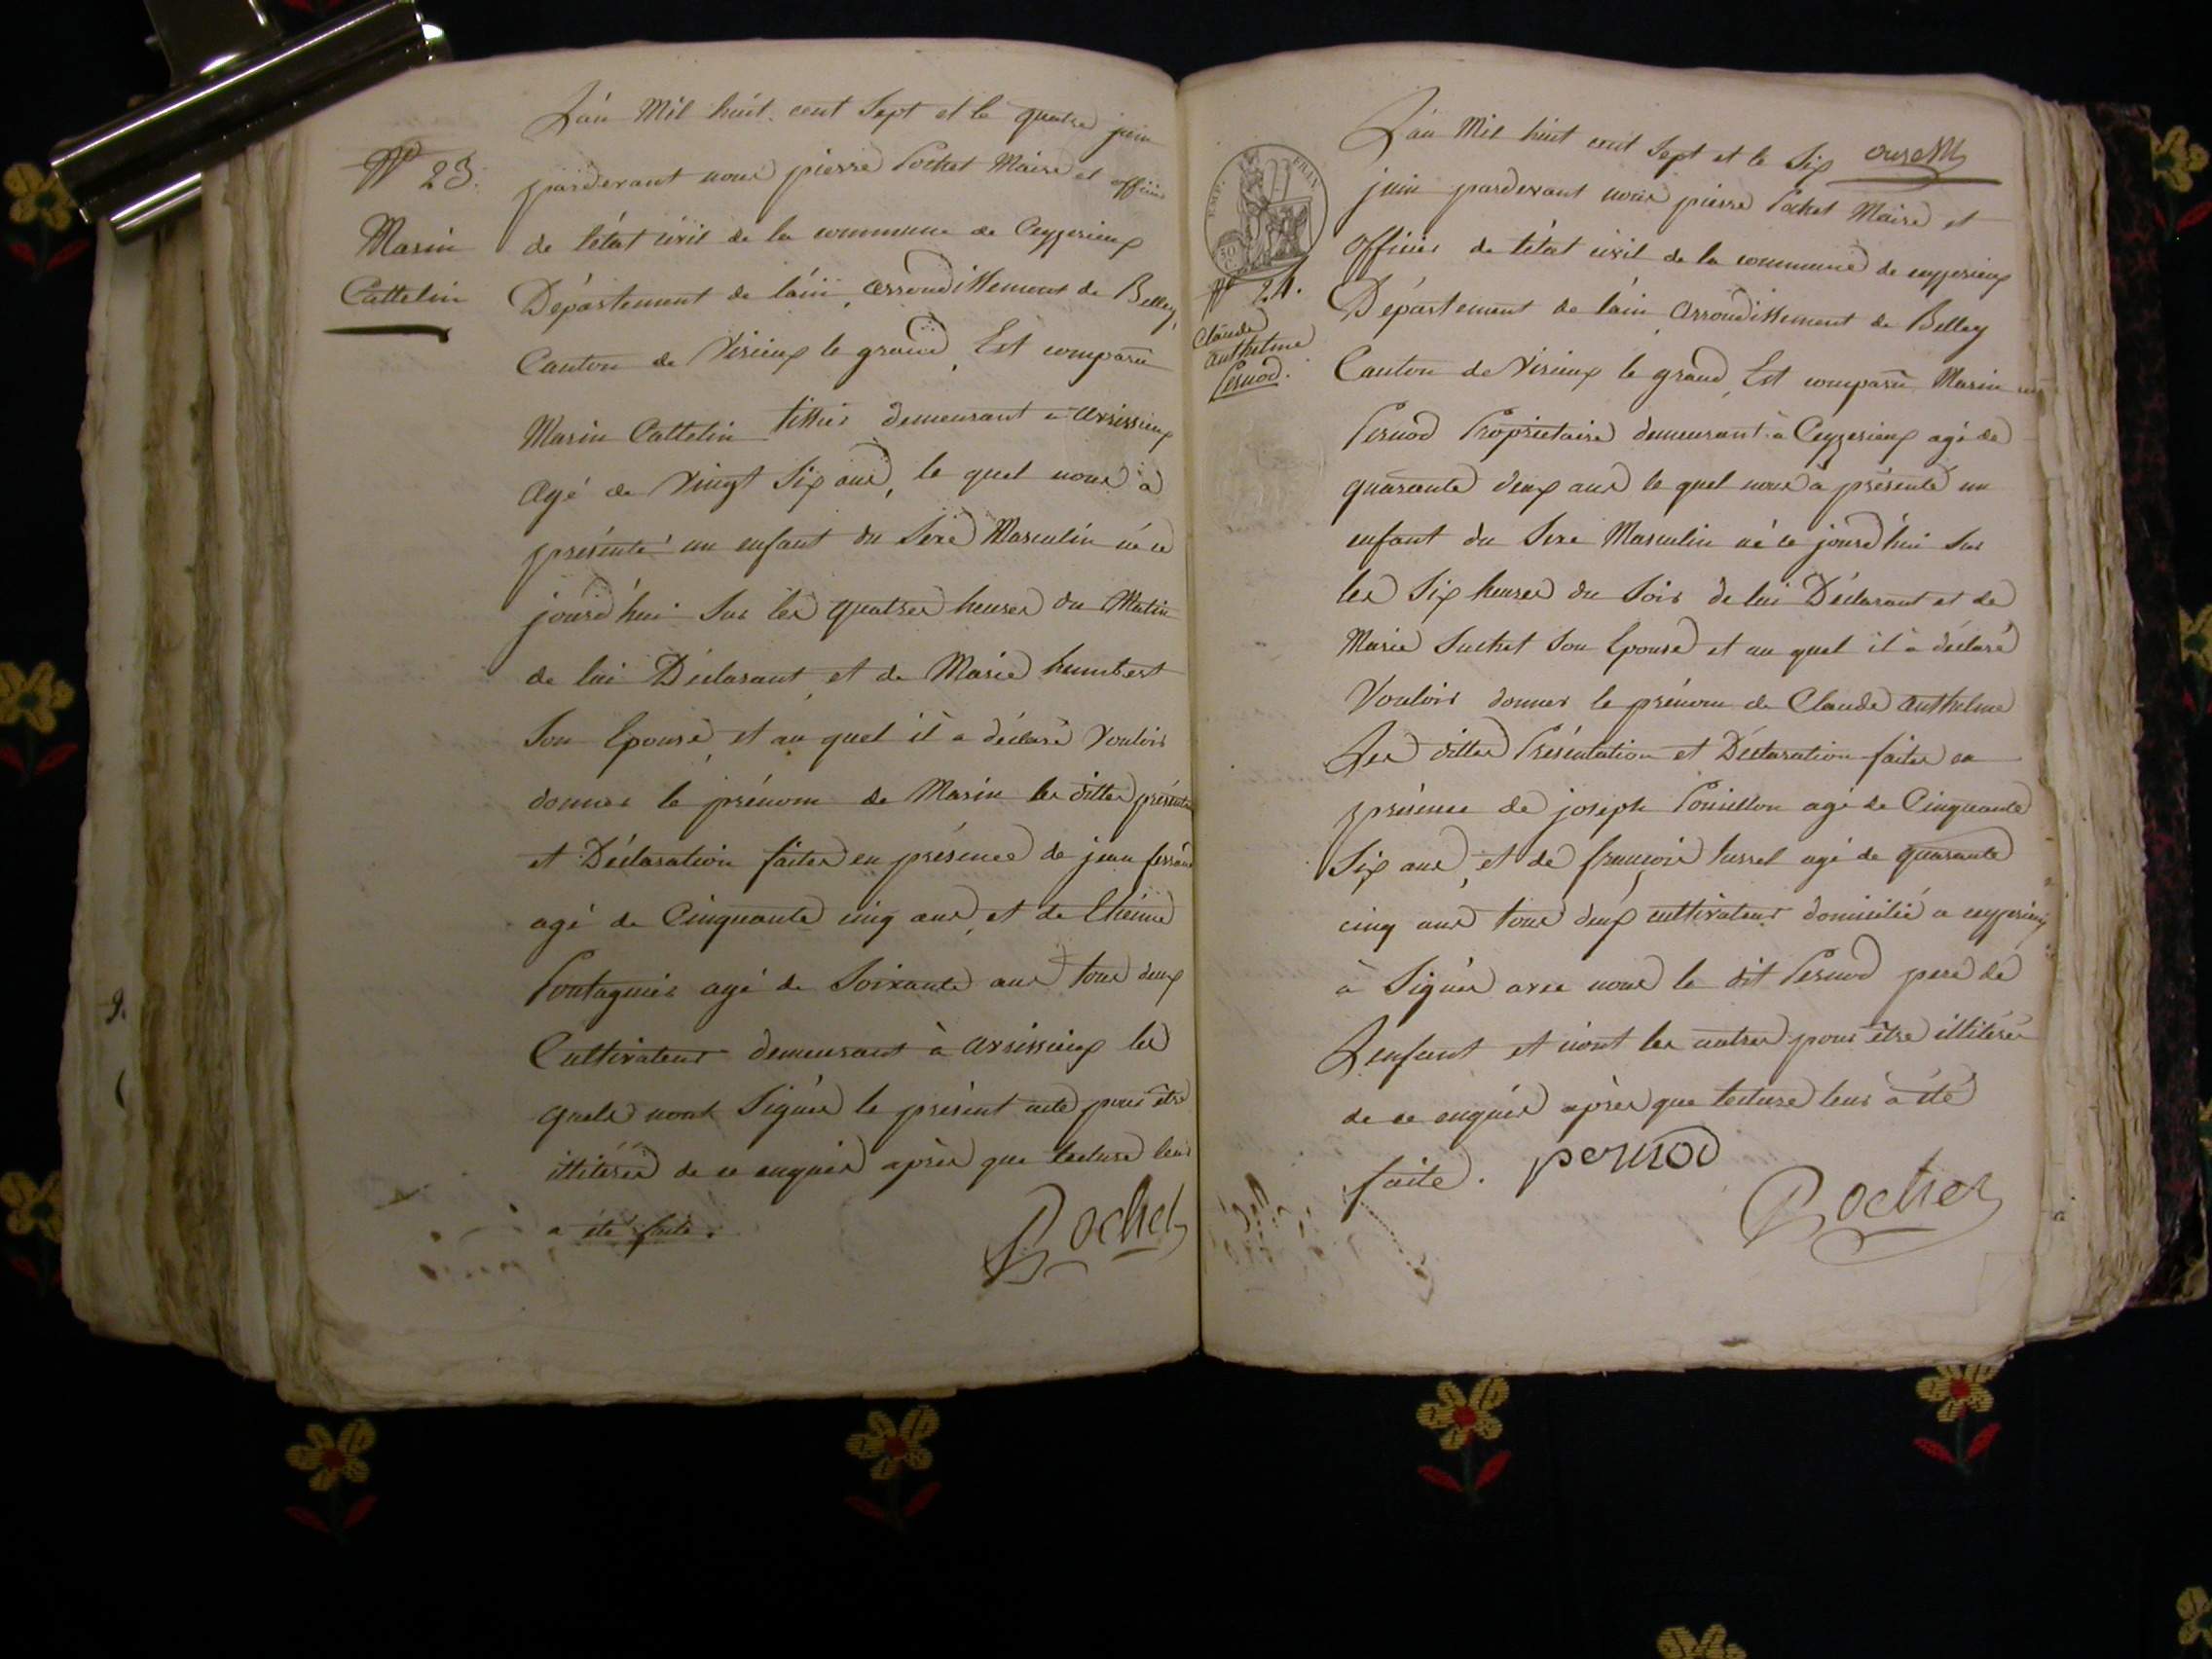 N° 23.
Marin
Cattelin
L'an Mil huit cent Sept et le quatre juin
pardevant nous pierre Pochet Maire et officier
de l'état civil de la commune de Ceyzerieux
Département de l'ain, arrondissement de Belley,
Canton de Virieux le grand, Est comparu
Marin Cattelin tissier demeurant a avrissieux
Agé de Vingt Six ans, le quel nous à
présenté un enfant du Sexe Masculin né ce
jourd'hui Sur les quatres heures du Matin
de lui Déclarant, et de Marie humbert
Son Epouse, et au quel il a déclaré Vouloir
donner le prénom de Marin les dittes présentation
et Déclaration faites en présence de jean
agé de Cinquante cinq ans, et de Etienne
Pontagnier agé de Soixante ans tous deux
Cultivateur demeurant à avrissieux les
quels nont Signés le présent acte pour être
illitérés de ce enquis après que lecture leur
a été faite.
Pochet
EMP. FRAN.
50
N° 24.
Claude
anthelme
Pernod.
L'an Mil huit cent Sept et le Six
juin pardevant nous pierre Pochet Maire et
officier de l'état civil de la commune de ceyzerieux
Département de l'ain, arrondissement de Belley
Canton de Virieux le grand, Est comparu Marin
Pernod Proprietaire demeurant à Ceyzerieux agé de
quarante deux ans le quel nous à présenté un
enfant du Sexe Masculin né ce jourd'hui Sur
les Six heures du Soir de lui Déclarant et de
Marie Suchet Son Epouse et au quel il à déclaré
Vouloir donner le prénom de Claude anthelme
Les dittes Présentation et Déclaration faites en
présence de joseph agé de Cinquante
Six ans, et de françois agé de quarante
cinq ans tous deux cultivateur domicilié a ceyzerieux
à Signés avec nous le dit Pernod pere de
L'enfant et n'ont les autres pour être illitérés
de ce enquis après que lecture leur à été
faite.
pernod
Pochet